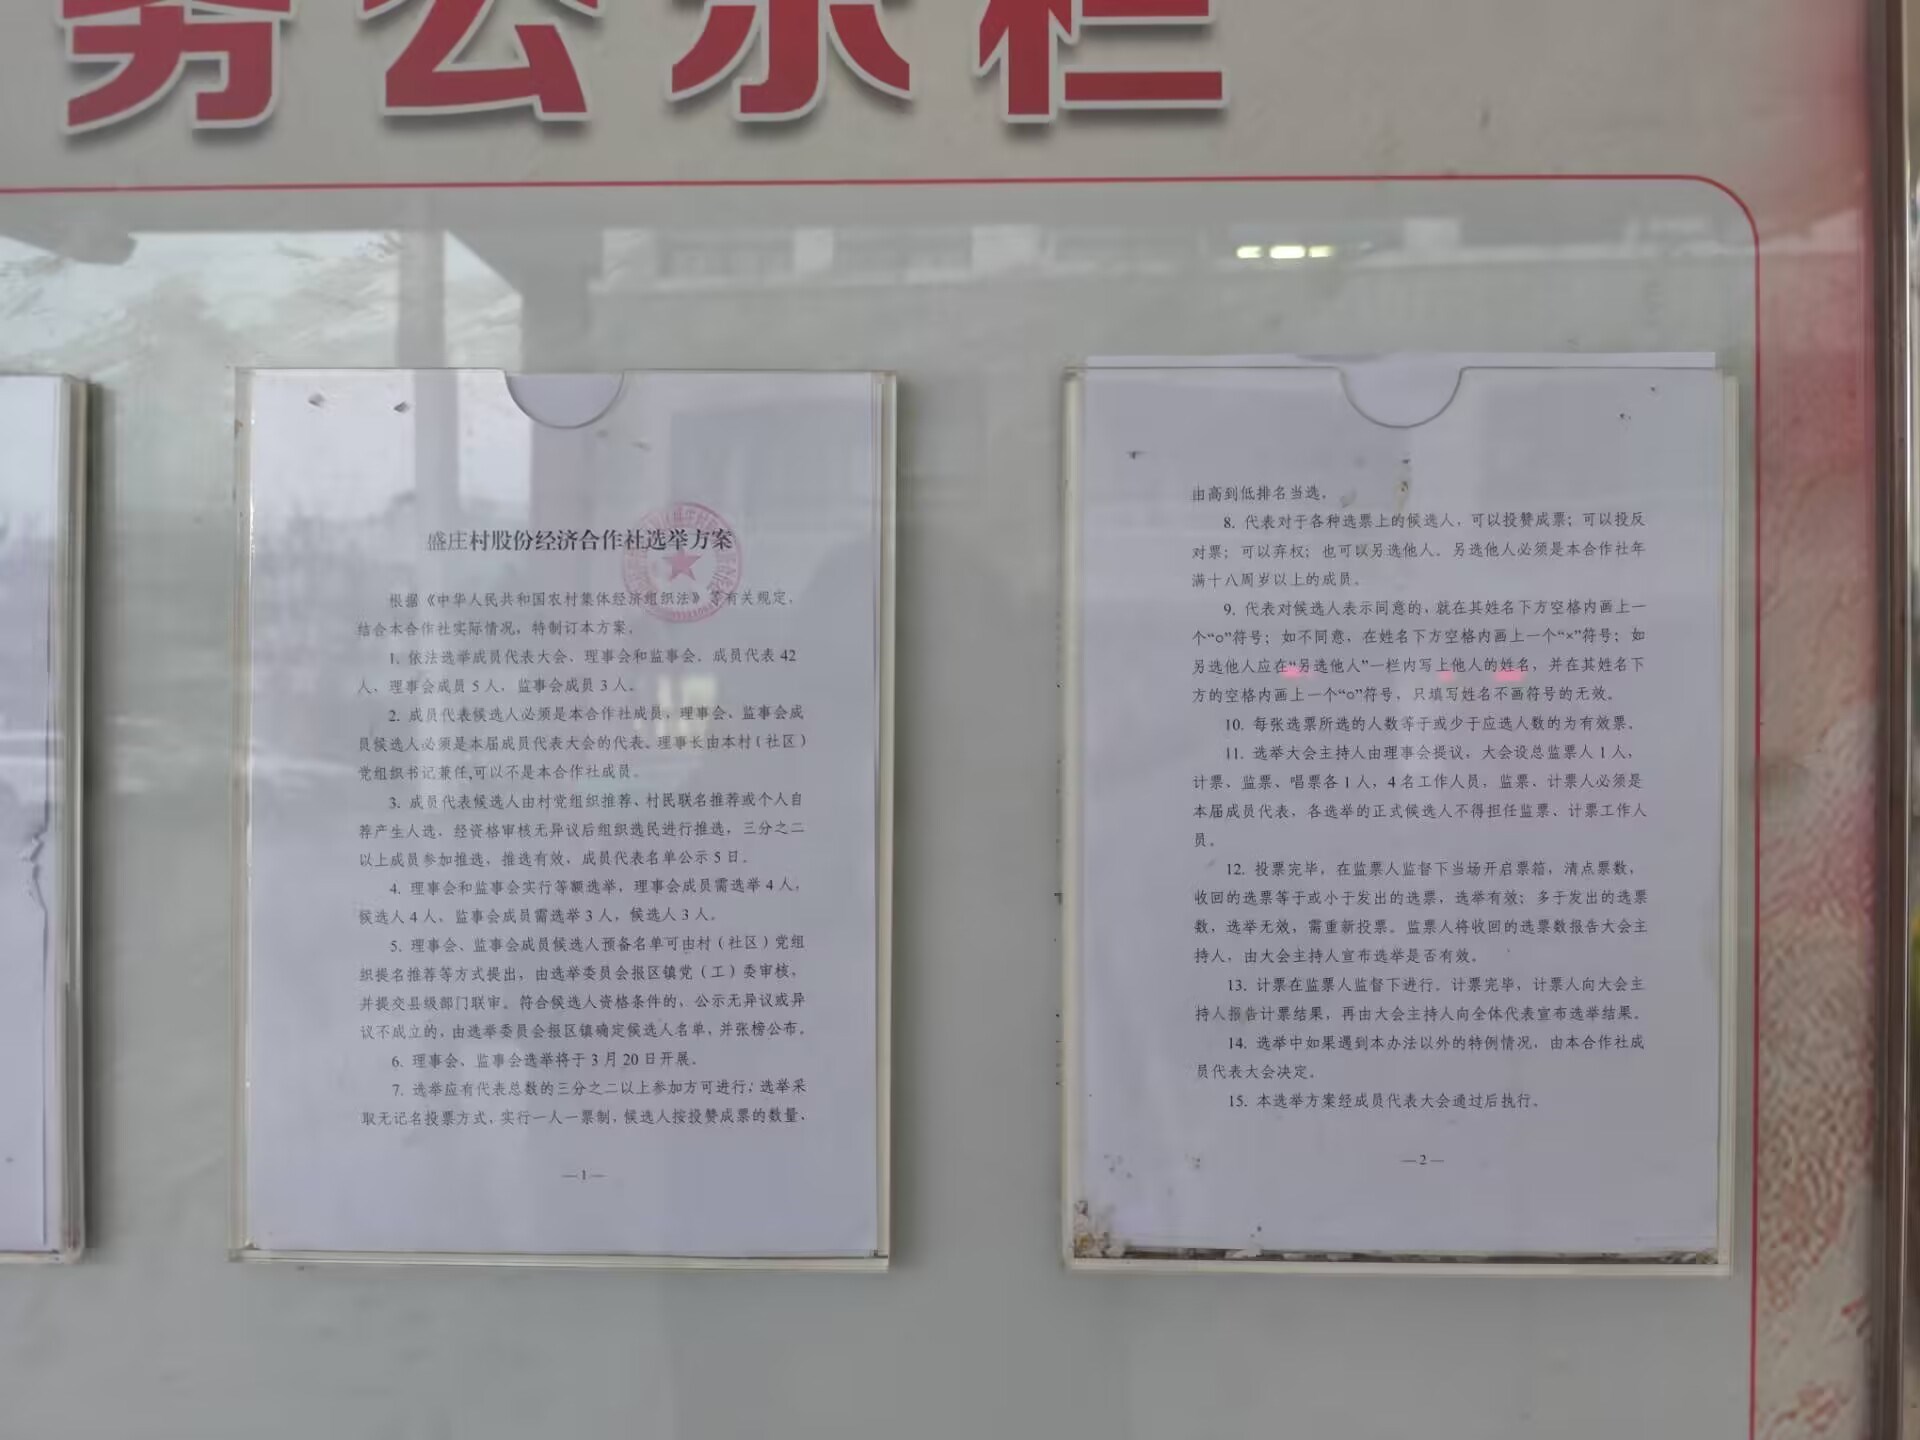 务公示栏
盛庄村股份经济合作社选举方案
根据《中华人民共和国农村集体经济组织法》等有关规定，
结合本合作社实际情况，特制订本方案。
1. 依法选举成员代表大会、理事会和监事会。成员代表 42
人，理事会成员 5 人，监事会成员 3 人。
2. 成员代表候选人必须是本合作社成员，理事会、监事会成
员候选人必须是本届成员代表大会的代表。理事长由本村（社区）
党组织书记兼任,可以不是本合作社成员。
3. 成员代表候选人由村党组织推荐、村民联名推荐或个人自
荐产生人选，经资格审核无异议后组织选民进行推选，三分之二
以上成员参加推选，推选有效，成员代表名单公示 5 日。
4. 理事会和监事会实行等额选举，理事会成员需选举 4 人，
候选人 4 人，监事会成员需选举 3 人，候选人 3 人。
5. 理事会、监事会成员候选人预备名单可由村（社区）党组
织提名推荐等方式提出，由选举委员会报区镇党（工）委审核，
并提交县级部门联审。符合候选人资格条件的，公示无异议或异
议不成立的，由选举委员会报区镇确定候选人名单，并张榜公布。
6. 理事会、监事会选举将于 3 月 20 日开展。
7. 选举应有代表总数的三分之二以上参加方可进行；选举采
取无记名投票方式，实行一人一票制，候选人按投赞成票的数量，
— 1 —
由高到低排名当选。
8. 代表对于各种选票上的候选人，可以投赞成票；可以投反
对票；可以弃权；也可以另选他人。另选他人必须是本合作社年
满十八周岁以上的成员。
9. 代表对候选人表示同意的，就在其姓名下方空格内画上一
个“○”符号；如不同意，在姓名下方空格内画上一个“×”符号；如
另选他人应在“另选他人”一栏内写上他人的姓名，并在其姓名下
方的空格内画上一个“○”符号，只填写姓名不画符号的无效。
10. 每张选票所选的人数等于或少于应选人数的为有效票。
11. 选举大会主持人由理事会提议，大会设总监票人 1 人，
计票、监票、唱票各 1 人，4 名工作人员，监票、计票人必须是
本届成员代表，各选举的正式候选人不得担任监票、计票工作人
员。
12. 投票完毕，在监票人监督下当场开启票箱，清点票数，
收回的选票等于或小于发出的选票，选举有效；多于发出的选票
数，选举无效，需重新投票。监票人将收回的选票数报告大会主
持人，由大会主持人宣布选举是否有效。
13. 计票在监票人监督下进行。计票完毕，计票人向大会主
持人报告计票结果，再由大会主持人向全体代表宣布选举结果。
14. 选举中如果遇到本办法以外的特例情况，由本合作社成
员代表大会决定。
15. 本选举方案经成员代表大会通过后执行。
— 2 —